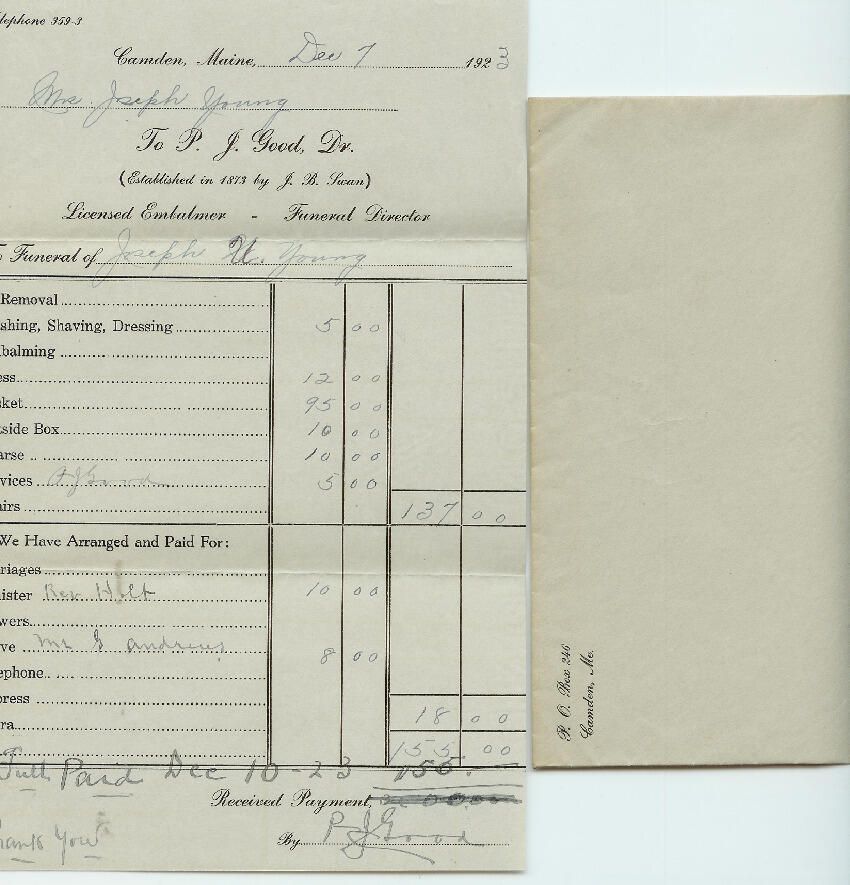 lephone 959-3
Camden, Maine, Dec 7 1923
Mrs Joseph Young
To P. J. Good, Dr.
(Established in 1873 by J. B. Swan)
Licensed Embalmer - Funeral Director
o Funeral of Joseph U. Young
Removal
shing, Shaving, Dressing 5 00
balming
ess 12 00
ket 95 00
tside Box 10 00
arse 10 00
vices P J Good 5 00
irs 137 00
We Have Arranged and Paid For:
riages
ister Rev Holt 10 00
wers
ve Mr G Andrews 8 00
ephone
press
ra 18 00
155 00
Full Paid Dec 10-23 155.
Received Payment,
hanks You
By P J Good
P. O. Box 246
Camden, Me.